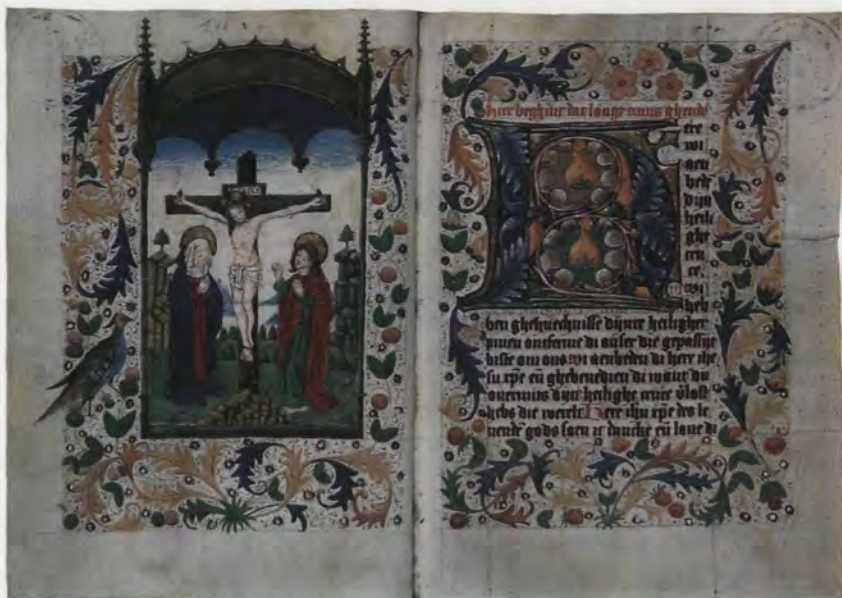 Hier beghint die lange cruus ghetide
ere
wi
aen
bede
dijn
heili
ghe
cru
ce. wi
heb
ben ghehuechnisse dijnre heiligher
pinen onserme di onser die gepassijt
biste om ons wi aenbeden di here ihe
su xpe en ghebenedien di want du
overmits dijn heilighe cruce vlost
hebs die werelt Here ihu xpe des le
vende gods soen ic dancke en love di